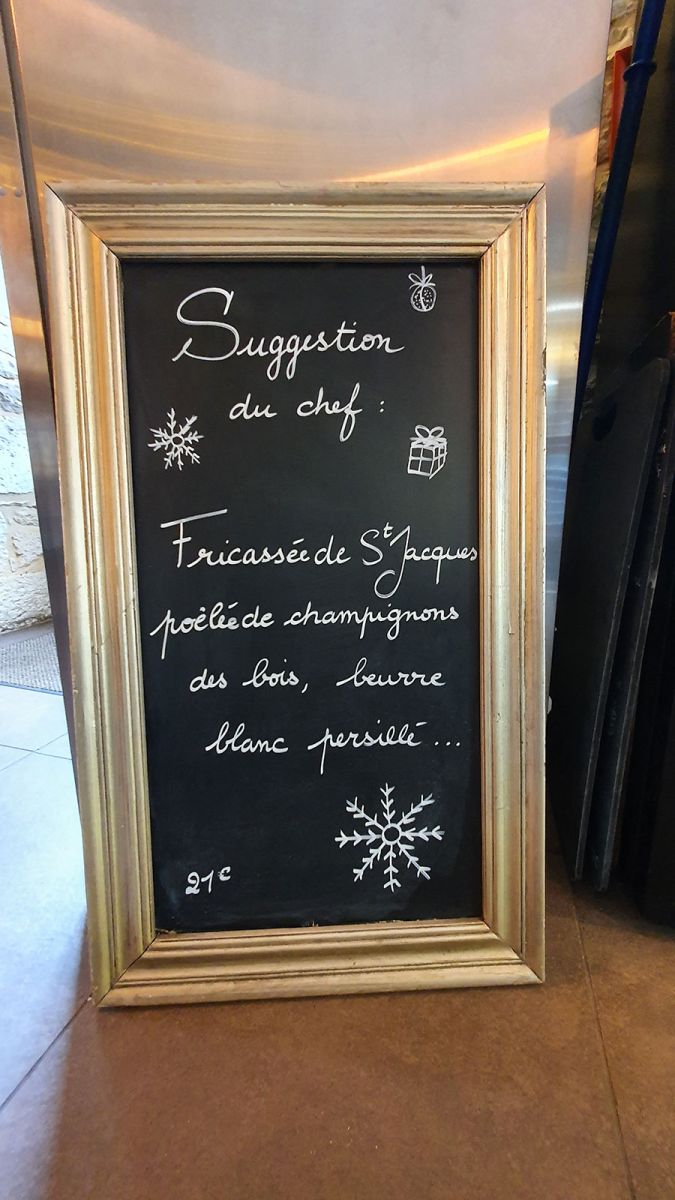 Suggestion
du chef :
Fricassée de St Jacques
poêlée de champignons
des bois, beurre
blanc persillé...
21€